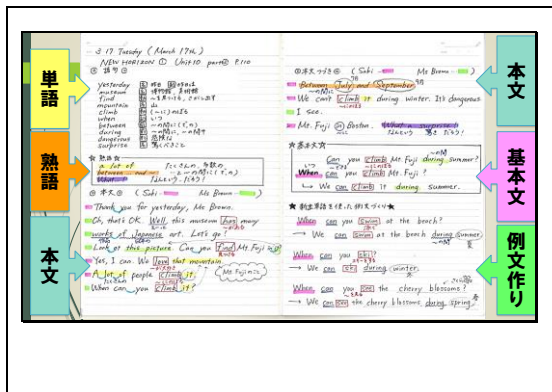 単語
熟語
本文
3.17 Tuesday (March 17th)
NEW HORIZON ① Unit 10 part② P.110
yesterday 昨日
museum 博物館, 美術館
find
mountain 山
climb (〜に)のぼる
when いつ
between 〜の間に(で, の)
during 〜の間に, 〜の間中
dangerous 危険な
surprise 驚くべきこと
☆熟語☆
a lot of たくさんの, 多数の
between ... and ... …と…の間に(で, の)
What! なんという, だろう!
本文 (Saki Ms Brown)
Thank you for yesterday, Ms Brown.
Oh, that's OK. Well, this museum has many
works of Japanese art. Let's go!
Look at this picture. Can you find Mt. Fuji
Yes, I can. We love that mountain.
A lot of people climb it.
たくさんの
Mt. Fujiのこと
When can you climb it?
本文つづき (Saki Ms Brown)
Between July and September.
〜の間に
We can't climb it during winter. It's dangerous
I see.
Mt. Fuji Boston. What a surprise!
☆基本文☆
Can you climb Mt. Fuji during summer?
いつ
When can you climb Mt. Fuji?
We can climb it during summer.
When can you swim at the beach?
→ We can swim at the beach during summer.
When can you ski?
→ We can ski during winter.
When can you see the cherry blossoms?
→ We can see the cherry blossoms during spring.
本文
基本文
例文作り